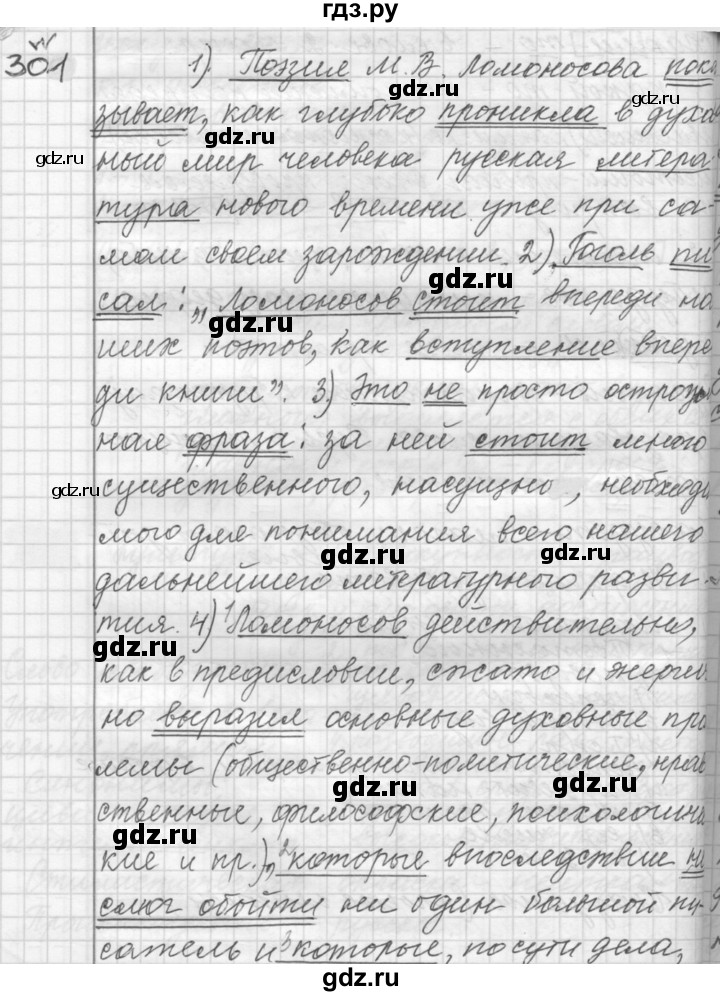 гдз.ру
301
1). Поэзия М. В. Ломоносова пока
зывает, как глубоко проникла в духов
ный мир человека русская литера
тура нового времени уже при са-
мом своем зарождении. 2) Гоголь пи
сал: „Ломоносов стоит впереди на
ших поэтов, как вступление впере
ди книги". 3) Это не просто остроум
ная фраза: за ней стоит много
существенного, насущно, необходи
мого для понимания всего нашего
дальнейшего литературного разви-
тия. 4) ¹Ломоносов действительно,
как в предисловии, сжато и энергич
но выразил основные духовные про
лемы (общественно-политические, нрав
ственные, философские, психологиче
кие и пр.), ²которые впоследствии не
смог обойти ни один большой пи-
сатель и ³которые, по сути дела,
gdz.ru
gdz.ru
gdz.ru
gdz.ru
gdz.ru
gdz.ru
gdz.ru
gdz.ru
gdz.ru
gdz.ru
gdz.ru
gdz.ru
gdz.ru
gdz.ru
гдз.ру